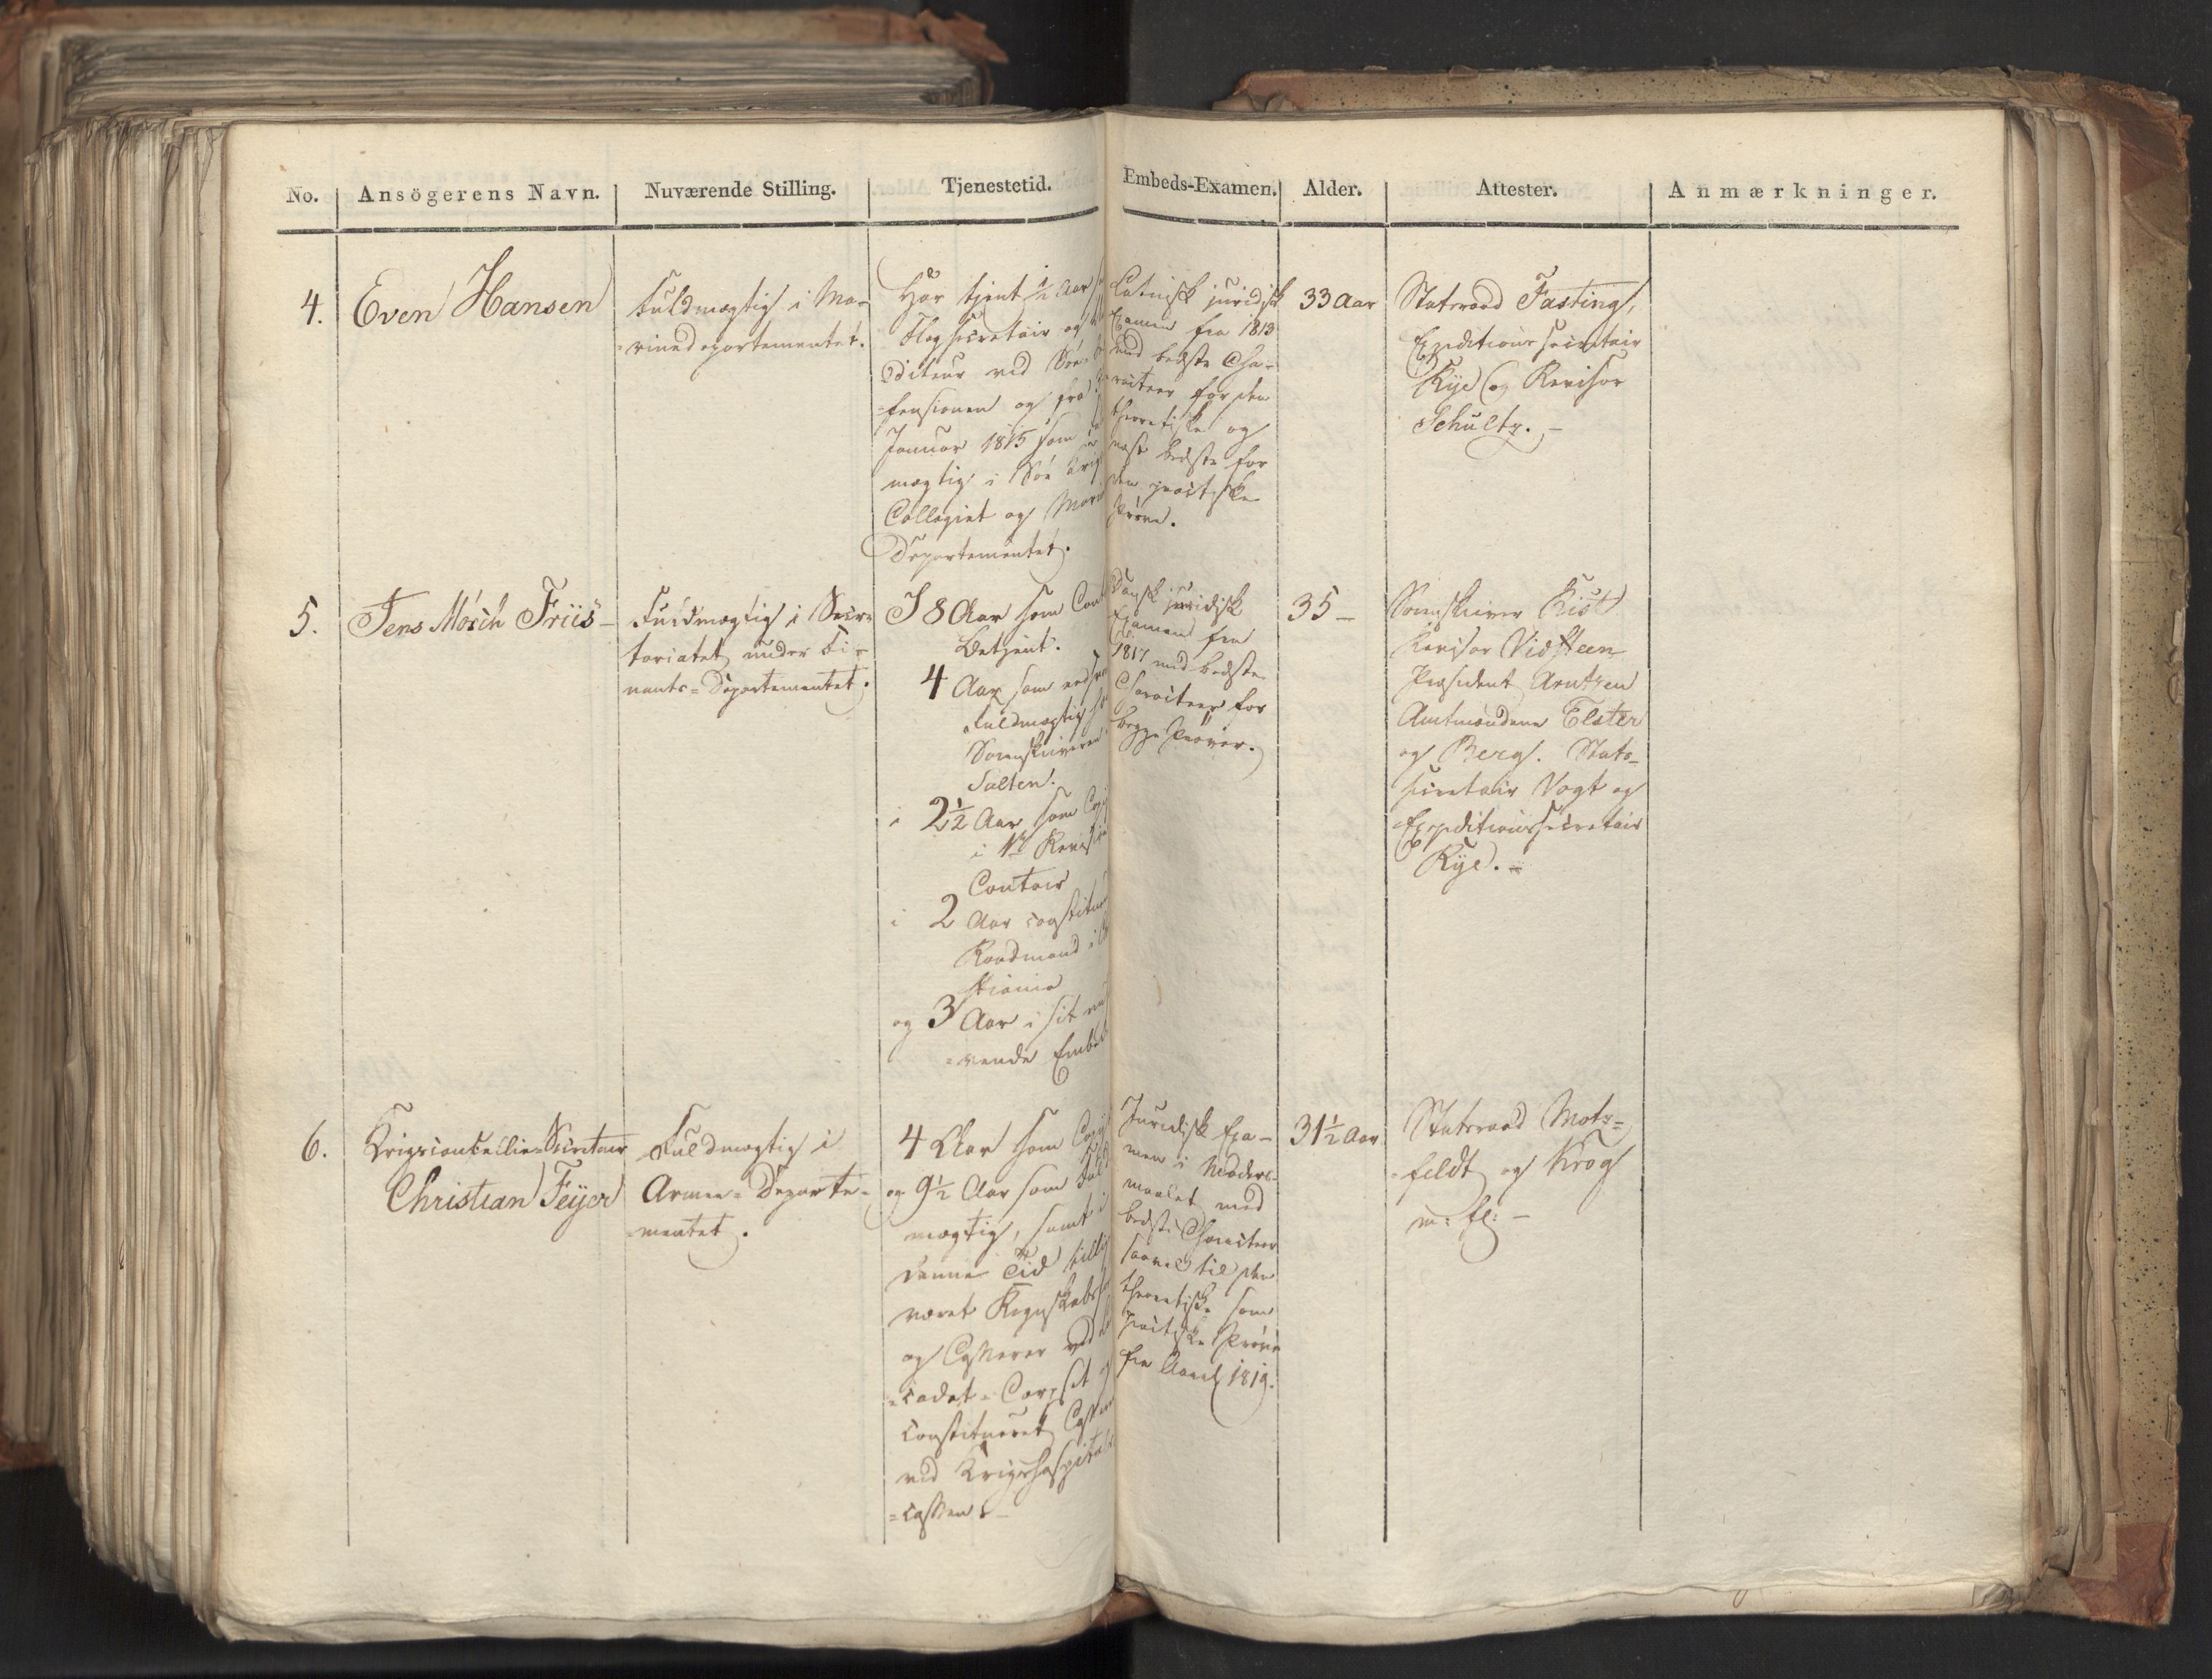 No. Ansögerens Navn. Nuværende Stilling. Tjenestetid. Embeds-Examen. Alder. Attester. Anmærkninger.
4.
Even Hansen
Fuldmægtig i Ma-
=rinedepartementet.
Har tjent ½ Aar
Flagsecretair og
diteur ved Söe-
=fensionen og fra
Januar 1815 som
mægtig i Söe Krigs
Collegiet og Marin
Departementet.
Latinsk juridisk
Examen fra 1813
med bedste Cha-
racteer for den
theoretiske og
næst bedste for
den practiske
Pröve.
33 Aar
Statsraad Fasting,
Expeditionssecretair
Rye og Revisor
Schultz. –
5.
Jens Mörch Friis –
Fuldmægtig i Secre-
tariatet under Fi-
nants-Departementet.
I 8 Aar som Cont
Betjent.
4 Aar som
Fuldmægtig
Sorenskriveren
Salten.
i 2½ Aar som Copi
i Revisions
Contoir
i 2 Aar constitu
Raadmand i
stiania
og 3 Aar i sit nu
=rende Embed
Dansk juridisk
Examen fra
1817 med bedste
Characteer for
begge Pröver.
35 –
Sorenskriver Rist
Revisor Vidsteen
Præsident Arntzen
Amtmændene Elster
og Berg. Stats-
secretair Vogt og
Expeditionssecretair
Rye. –
6.
Krigscancellie-Secretair
Christian Feyer
Fuldmægtig i
Armee-Departe-
mentet.
4 Aar som Copi
og 9½ Aar som Fuld
mægtig, samt i
denne Tid tillig
været Regnskabs
og Casserer ved
=cadet-Corpset
constitueret Casser
ved Krigshospital
=cassen. –
Juridisk Exa-
men i Moders-
maalet med
bedste Characteer
saavel til den
theoretiske som
practiske Pröve
fra April 1819.
31½ Aar
Statsraad Motz-
=feldt og Krog
m: fl: –